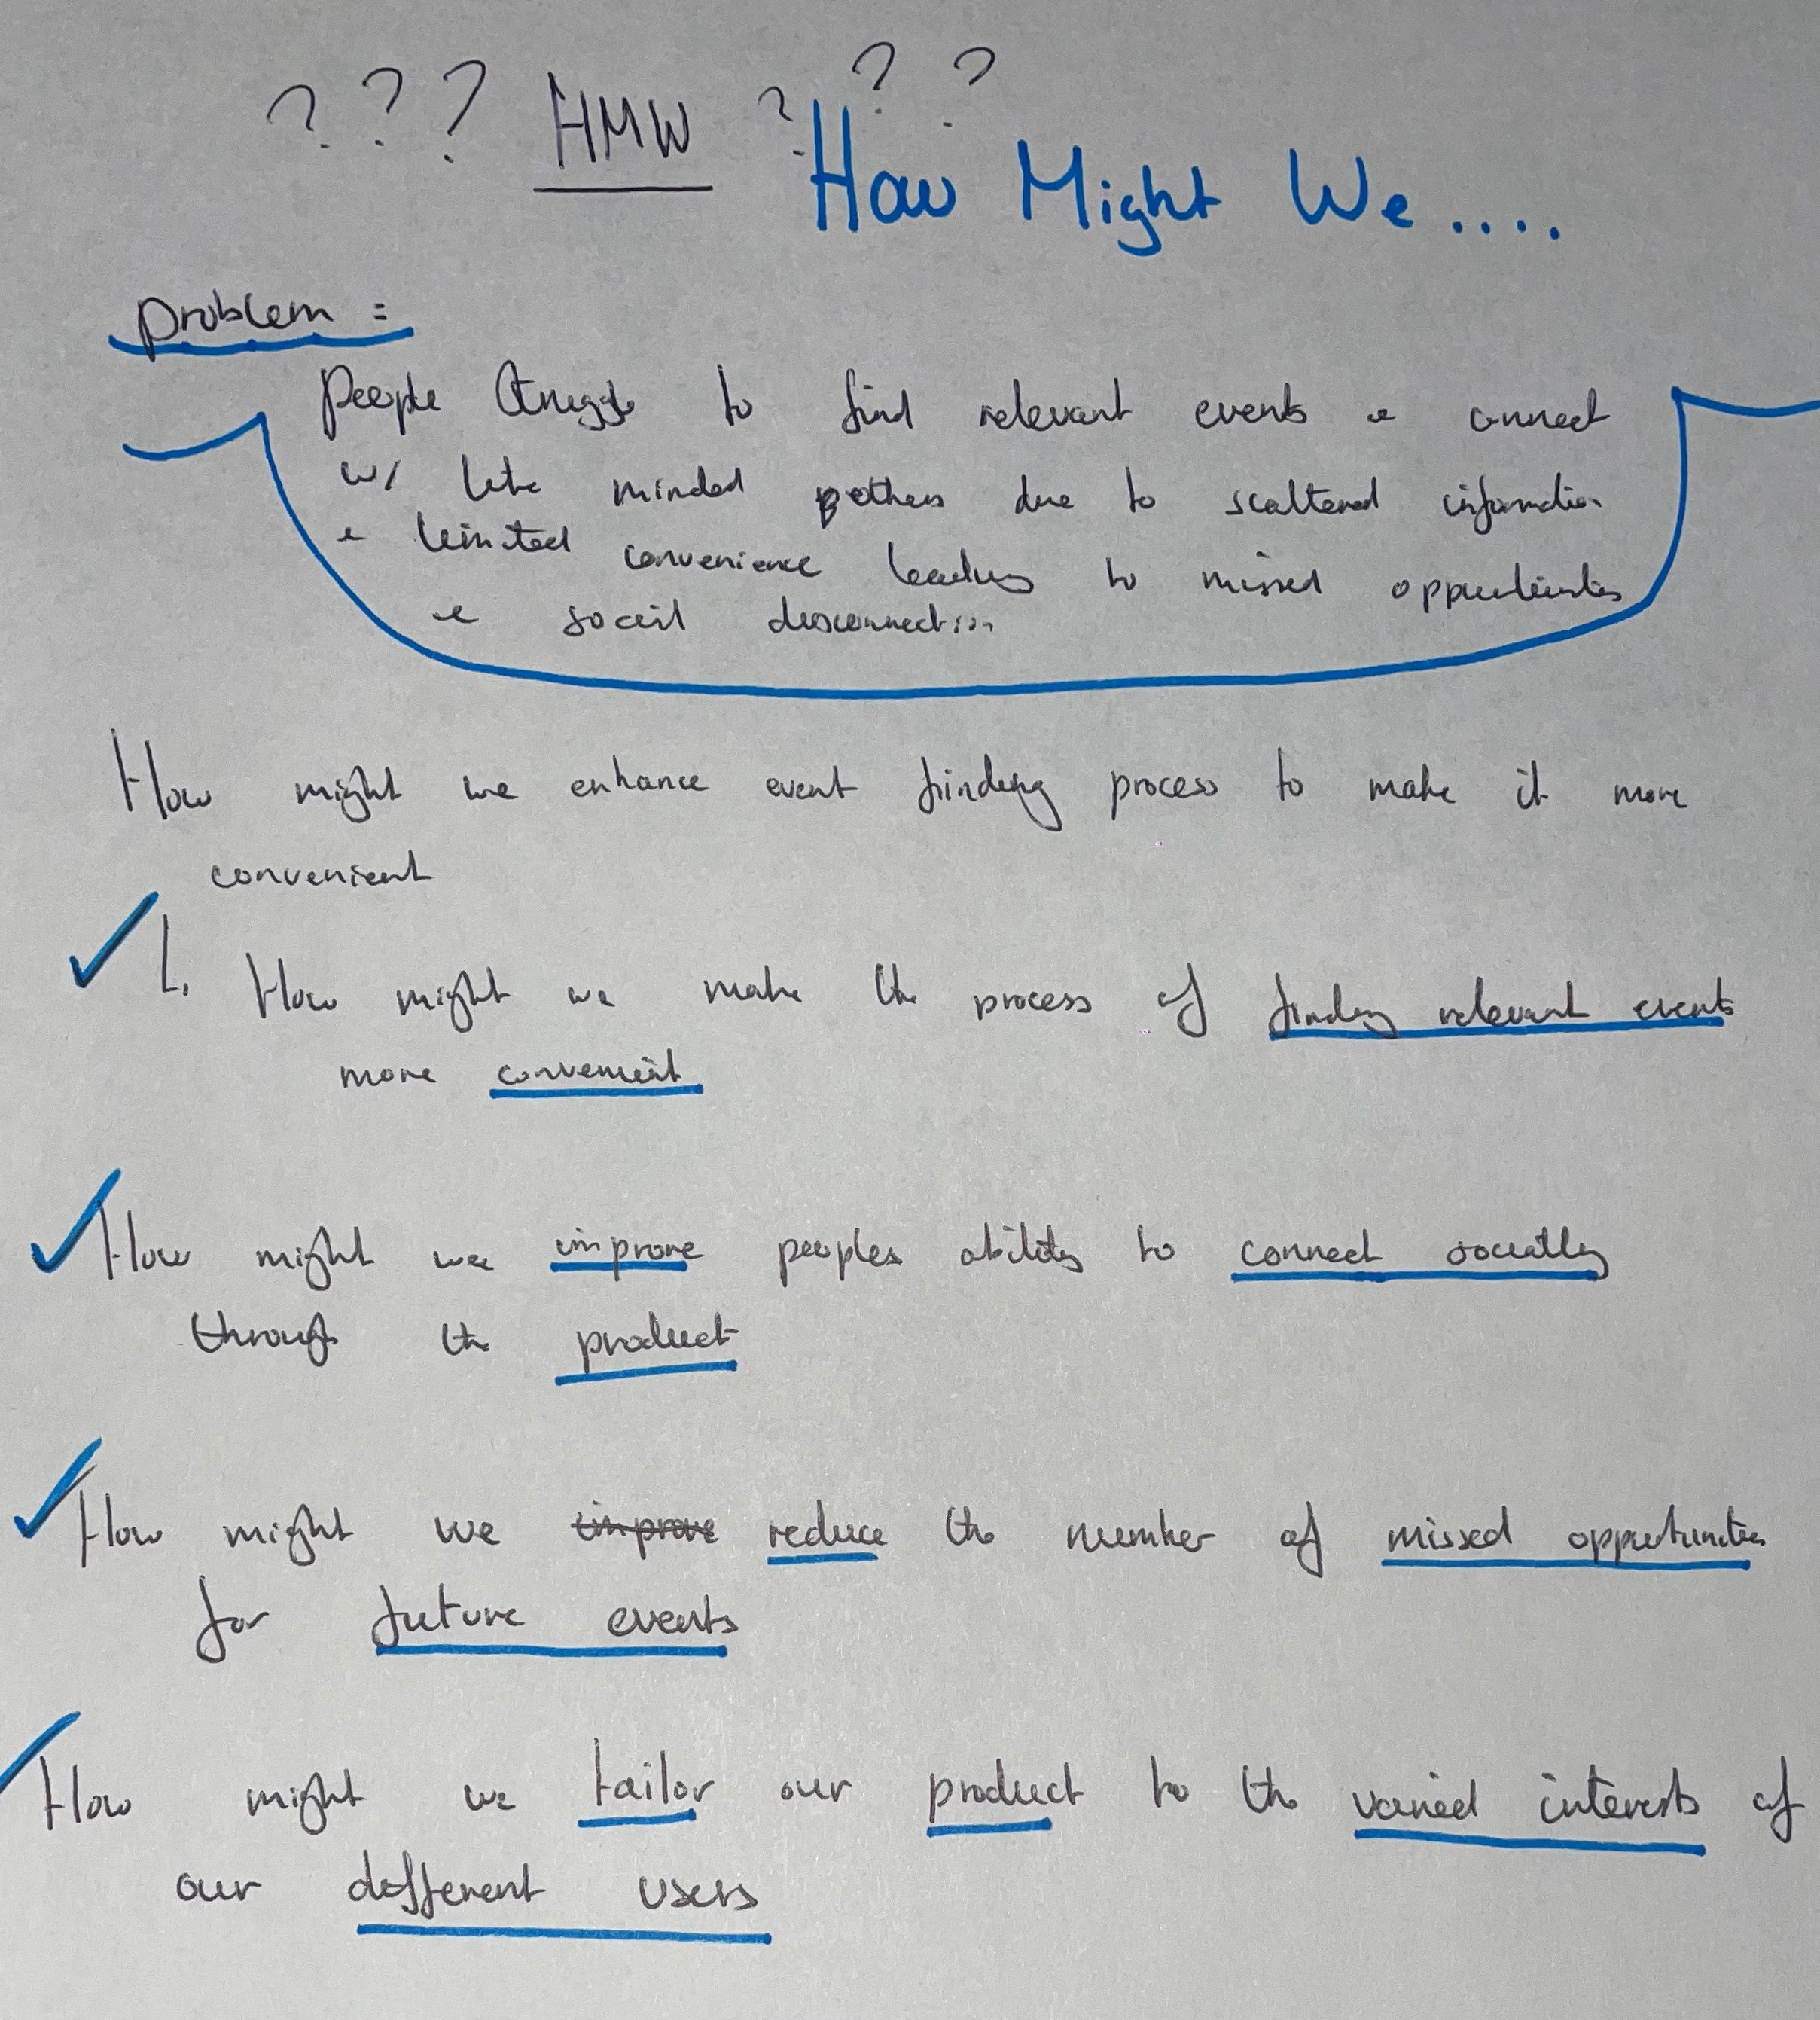 ? ? ? HMW ? ? ?
How Might We....
Problem :
People struggle to find relevant events & connect
w/ like minded others due to scattered information
& limited convenience leading to missed opportunities
& social disconnection
How might we enhance event finding process to make it more
convenient
1. How might we make the process of finding relevant events
more convenient
How might we improve peoples ability to connect socially
through the product
How might we improve reduce the number of missed opportunities
for future events
How might we tailor our product to the varied interests of
our different users